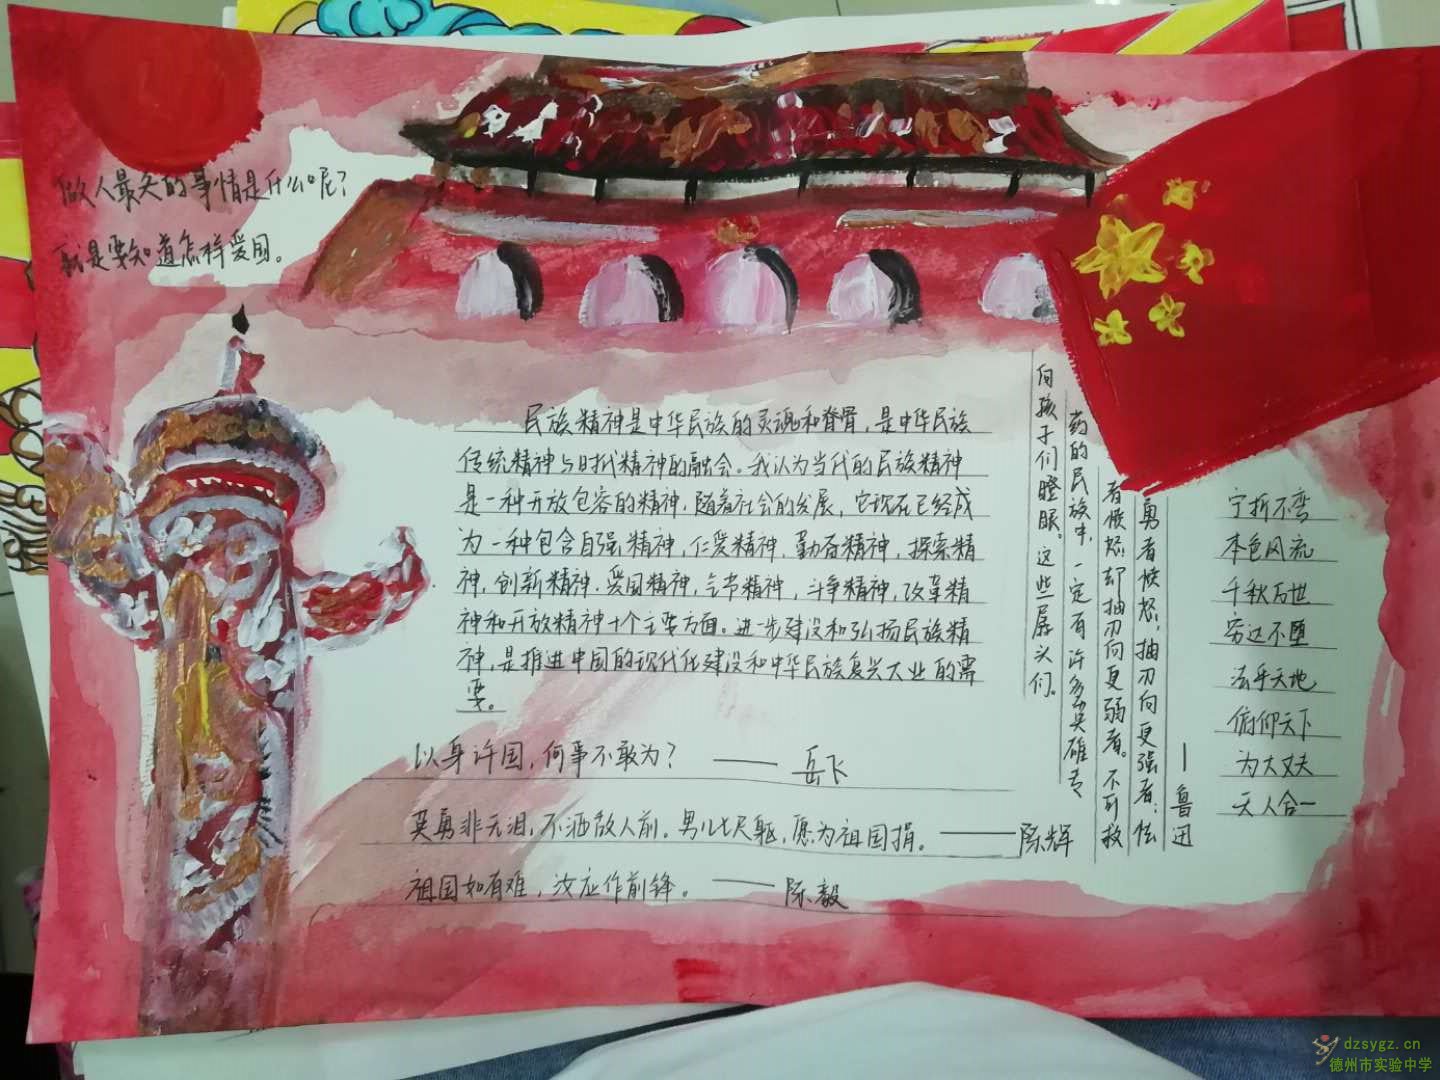 做人最大的事情是什么呢?
就是要知道怎样爱国。
民族精神是中华民族的灵魂和脊骨,是中华民族
传统精神与时代精神的融会。我认为当代的民族精神
是一种开放包容的精神,随着社会的发展,它现在已经成
为一种包含自强精神,仁爱精神,勤奋精神,探索精
神,创新精神,爱国精神,气节精神,斗争精神,改革精
神和开放精神十个主要方面。进一步建设和弘扬民族精
神,是推进中国的现代化建设和中华民族复兴大业的需
要。
以身许国,何事不敢为?——岳飞
英勇非无泪,不洒敌人前。男儿七尺躯,愿为祖国捐。——陈辉
祖国如有难,汝应作前锋。——陈毅
勇者愤怒,抽刃向更强者;怯
者愤怒,却抽刃向更弱者。不可救
药的民族中,一定有许多英雄专
向孩子们瞪眼。这些孱头们。
—鲁迅
宁折不弯
本色风流
千秋万世
穷达不堕
法乎天地
俯仰天下
为大丈夫
天人合一
dzsygz.cn
德州市实验中学